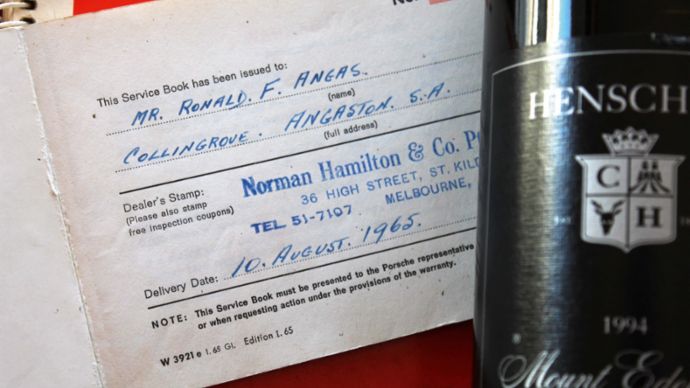 This Service Book has been issued to:
MR. RONALD. F. ANGAS.
(name)
COLLINGROVE. ANGASTON. S.A.
(full address)
Dealer's Stamp:
(Please also stamp
free inspection coupons)
Norman Hamilton & Co. P
36 HIGH STREET, ST. KIL
TEL 51-7107 MELBOURNE,
Delivery Date: 10. AUGUST. 1965.
NOTE: This Service Book must be presented to the Porsche representative
or when requesting action under the provisions of the warranty.
W 3921 e 1. 65 GL Edition I. 65
HENSCH
C
H
1994
Mount Ed